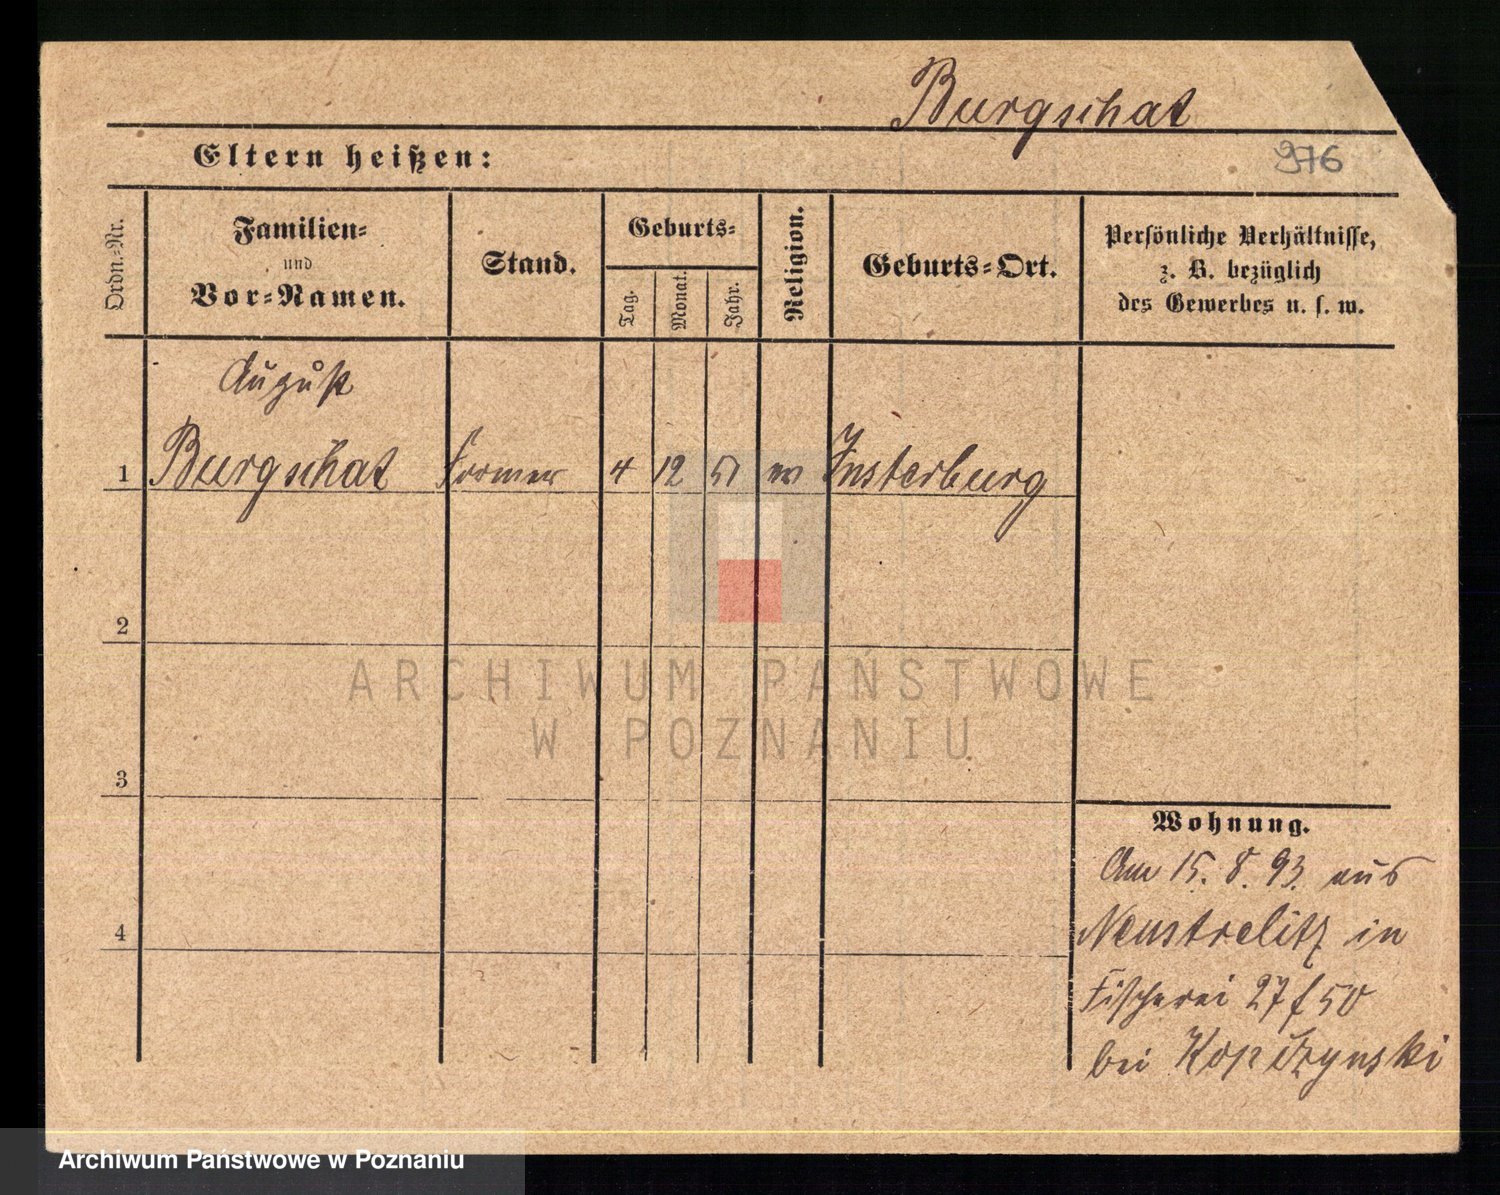 Burgschat
Eltern heißen:
976
Ordn.-Nr.
Familien-
und
Vor-Namen.
Stand.
Geburts-
Tag.
Monat.
Jahr.
Religion.
Geburts-Ort.
Persönliche Verhältnisse,
z. B. bezüglich
des Gewerbes u. s. w.
August
1 Burgschat Former 4 12 51 ev Insterburg
2
3
4
Wohnung.
Am 15. 8. 93. aus
Neustrelitz in
Fischerei 27/50
bei Kopczynski
ARCHIWUM PAŃSTWOWE
W POZNANIU
Archiwum Państwowe w Poznaniu